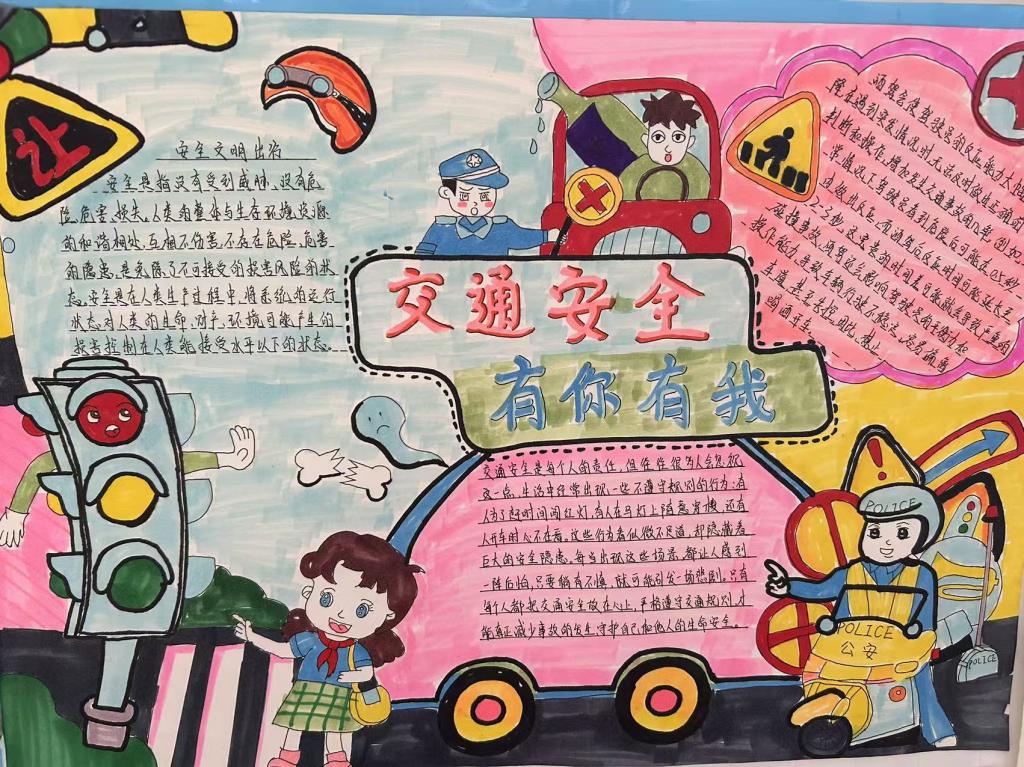 让
安全文明出行
安全是指没有受到威胁,没有危
险、危害、损失。人类的整体与生存环境资源
的和谐相处,互相不伤害,不存在危险、危害
的隐患,是免除了不可接受的损害风险的状
态。安全是在人类生产过程中,将系统的运行
状态对人类的生命、财产、环境可能产生的
损害控制在人类能接受水平以下的状态。
交通安全
有你有我
交通安全是每个人的责任,但往往很多人会忽视
这一点。生活中经常出现一些不遵守规则的行为:有
人为了赶时间闯红灯,有人在马路上随意穿梭,还有
人开车时心不在焉。这些行为看似微不足道,却隐藏着
巨大的安全隐患。每当出现这些场景,都让人感到
一阵后怕,只要稍有不慎,就可能引发一场悲剧。只有
每个人都把交通安全放在心上,严格遵守交通规则,才
能真正减少事故的发生,守护自己和他人的生命安全。
酒驾会使驾驶员的反应能力
降在遇到突发情况时无法及时做出正确的
判断和操作,增加发生交通事故的几率。例如
常情况下驾驶员看到危险后可能在0.75秒
POLICE
POLICE
公安
POLICE